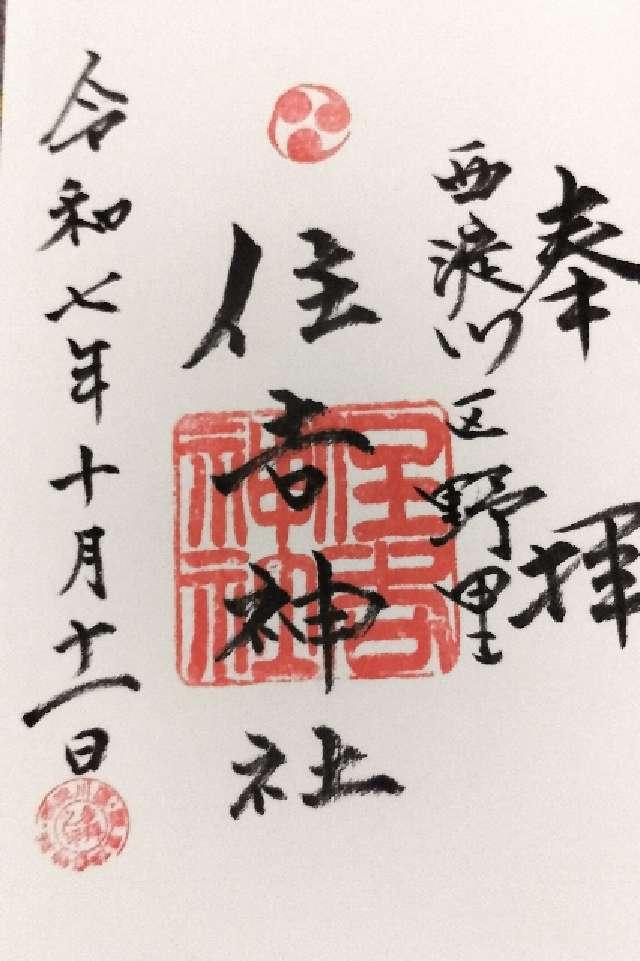 奉拝
西淀川区野里
住吉神社
住吉神社
令和七年十月十一日